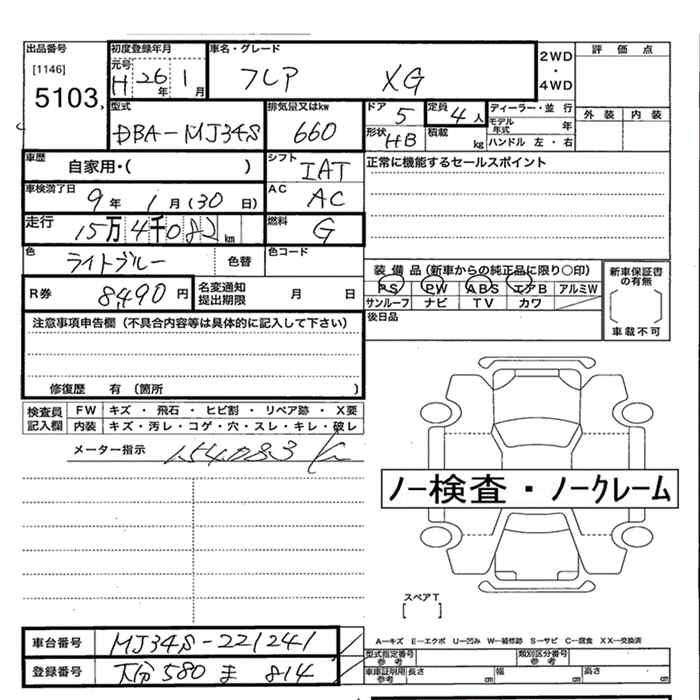 出品番号
[1146]
5103
初度登録年月
元号 H 26年 1月
車名・グレード
フレア XG
2WD・4WD
評価点
外装 内装
型式
DBA-MJ34S
排気量又はkw
660
ドア 5
形状 HB
定員 4人
積載 kg
ディーラー・並行
モデル年式 年
ハンドル 左・右
車歴 自家用・( )
シフト IAT
正常に機能するセールスポイント
車検満了日 9年 1月 (30日)
AC AC
走行 15万4千082km
燃料 G
色 ライトブルー 色替
色コード
R券 8,490円
名変通知提出期限 月 日
装備品(新車からの純正品に限り○印)
PS PW ABS エアB アルミW
サンルーフ ナビ TV カワ
新車保証書の有無
車載不可
後日品
注意事項申告欄(不具合内容等は具体的に記入して下さい)
修復歴 有 (箇所 )
検査員記入欄
FW キズ・飛石・ヒビ割・リペア跡・X要
内装 キズ・汚レ・コゲ・穴・スレ・キレ・破レ
メーター指示 154083K
ノー検査・ノークレーム
スペアT
[ ]
A―キズ E―エクボ U―凹み W―補修跡 S―サビ C―腐食 XX―交換済
車台番号 MJ34S-221241
登録番号 大分 580 ま 814
型式指定番号 参考
類別区分番号 参考
車庫証明用参考 長さ cm 幅 cm 高さ cm